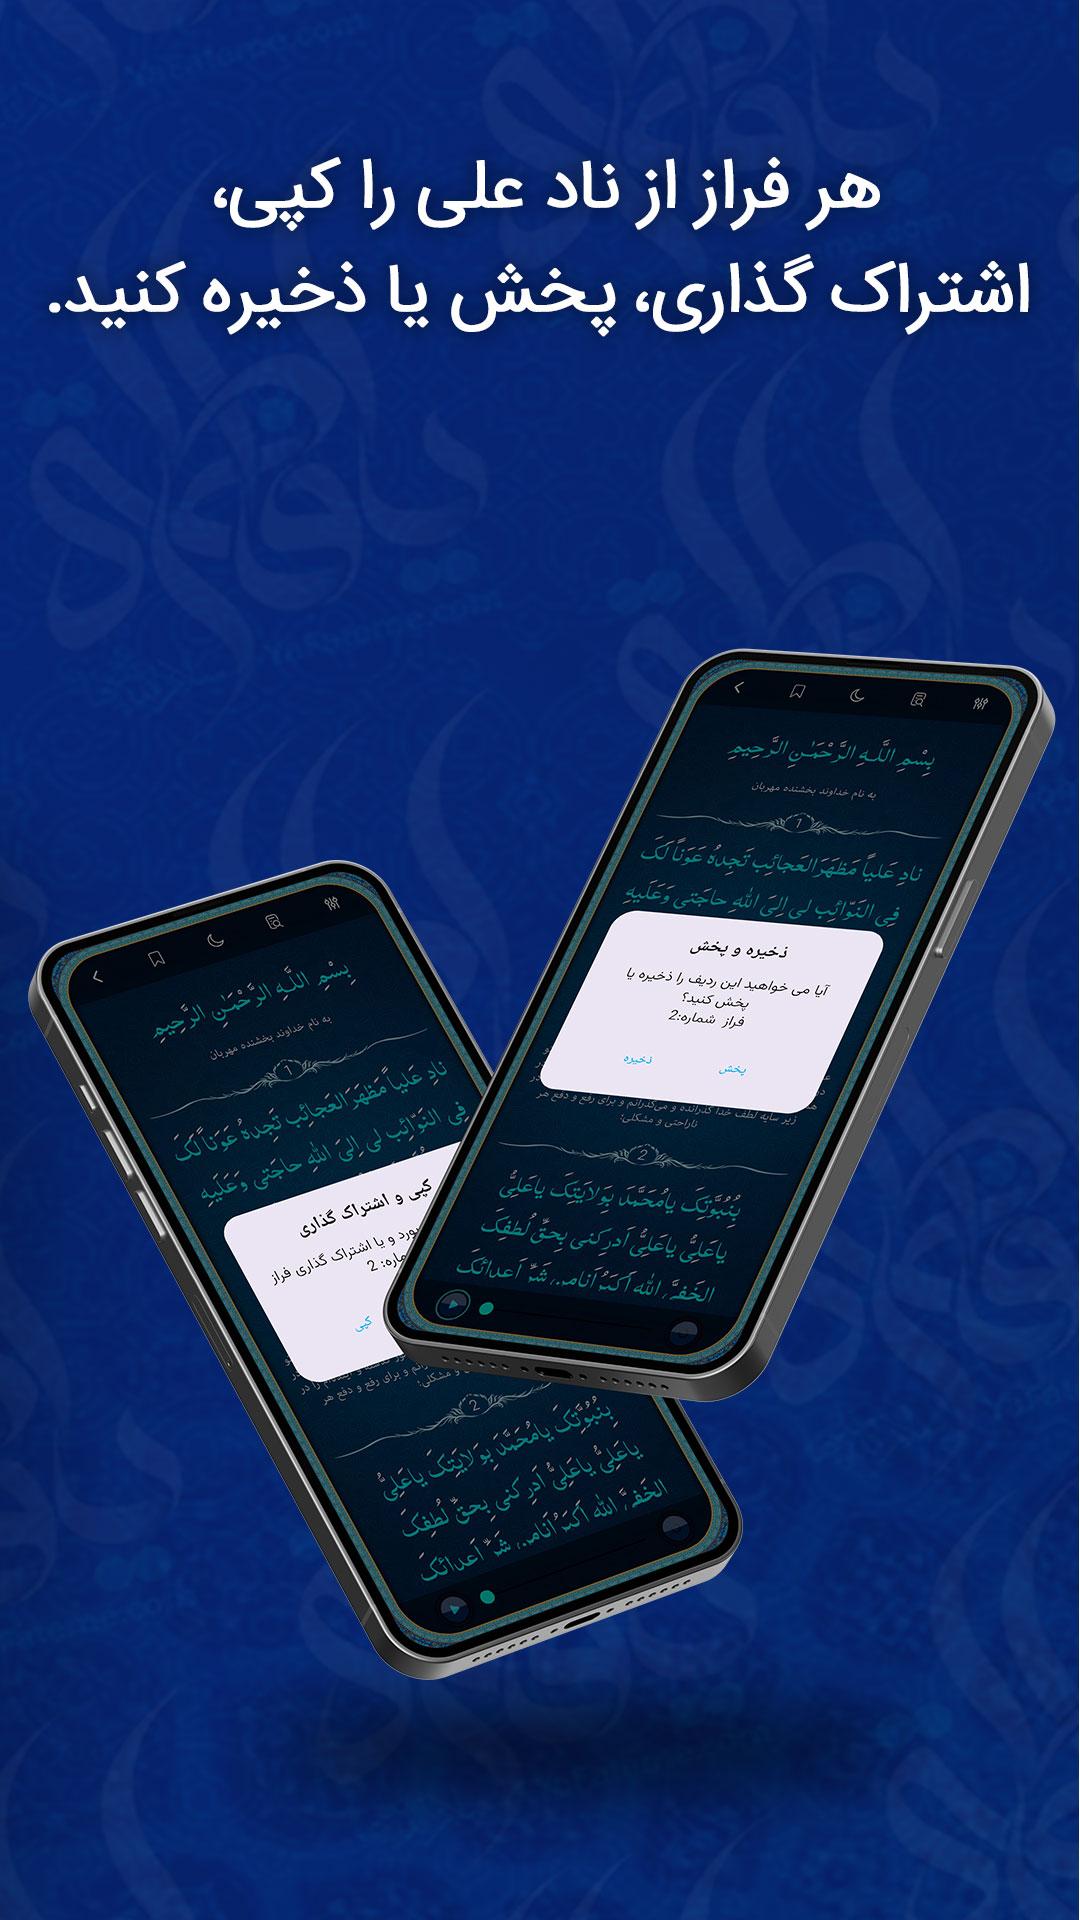 هر فراز از ناد علی را کپی،
اشتراک گذاری، پخش یا ذخیره کنید.
بِسْمِ اللَّـهِ الرَّحْمَـٰنِ الرَّحِيمِ
به نام خداوند بخشنده مهربان
1
نادِ عَلیاً مَظهَرَ العَجائِب تَجِدهُ عَوناً لَکَ
فِی النَوّائِب لی اِلیَ اللهِ حاجَتی وَعَلَیهِ
ذخیره و پخش
آیا می خواهید این ردیف را ذخیره یا
پخش کنید؟
فراز شماره:2
ذخیره پخش
زیر سایه لطف خدا گذرانده و می‌گذرانم و برای رفع و دفع هر
ناراحتی و مشکلی:
2
بِنُبُوَّتِکَ یامُحَمَّد بِوَلایَتِکَ یاعَلِیُّ
یاعَلِیُّ یاعَلِیُّ اَدرِکنی بِحَقِّ لُطفِکَ
الخَفیِّ، الله اَکبَرُ اَنامِن شَرِّ اَعدائکَ
بِسْمِ اللَّـهِ الرَّحْمَـٰنِ الرَّحِيمِ
به نام خداوند بخشنده مهربان
1
نادِ عَلیاً مَظهَرَ العَجائِب تَجِدهُ عَوناً لَکَ
فِی النَوّائِب لی اِلیَ اللهِ حاجَتی وَعَلَیهِ
کپی و اشتراک گذاری
و یا اشتراک گذاری فراز
2
کپی
و برای رفع و دفع هر
و مشکلی:
2
بِنُبُوَّتِکَ یامُحَمَّد بِوَلایَتِکَ یاعَلِیُّ
یاعَلِیُّ یاعَلِیُّ اَدرِکنی بِحَقِّ لُطفِکَ
الخَفیِّ، الله اَکبَرُ اَنامِن شَرِّ اَعدائکَ